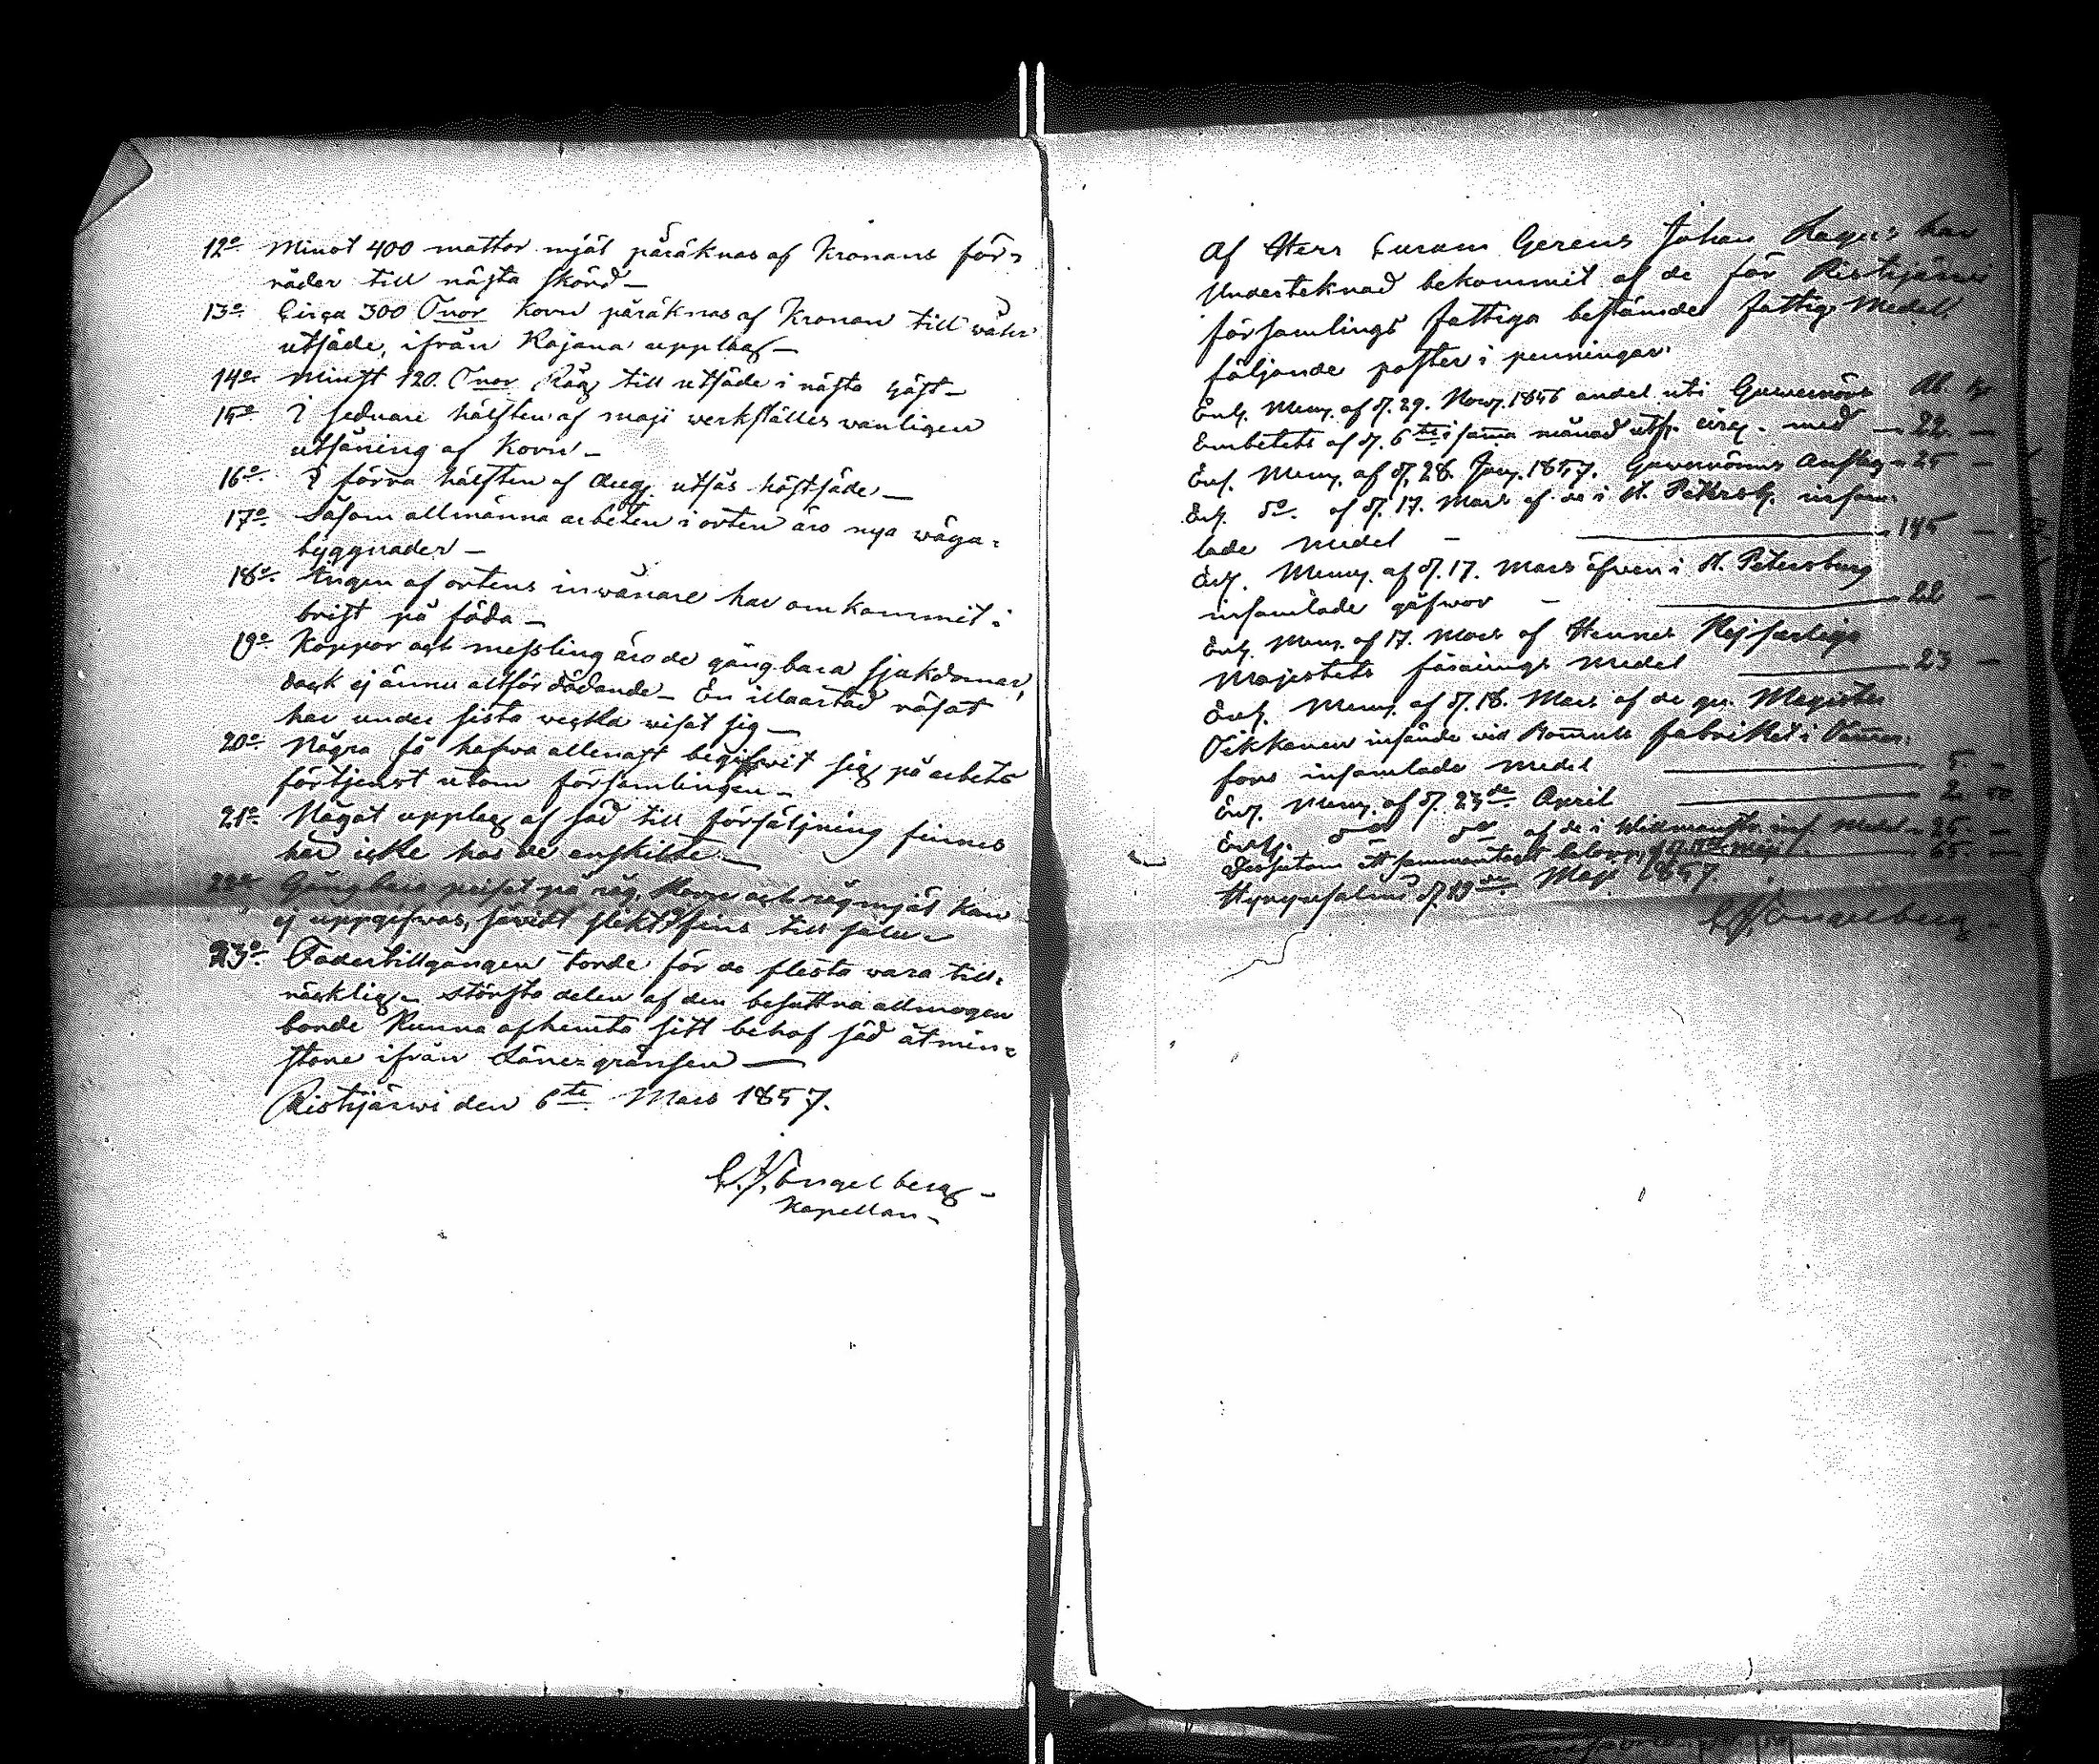 12o. Minst 400 mattor mjöl påräknas af Kronans för=
råder till nästa skörd —
13o. Circa 300 Tnor Korn påräknas af Kronan till vår
utsäde, ifrån Kajana upplag —
14o. Minst 120 Tnor Råg till utsäde i nästa höst —
15o. I sednare hälften af maji werkställes vanligen
utsåning af Korn —
16o. I förra hälften af Aug. utsås höstsäde —
17o. Såsom allmänna arbeten i orten äro nya väga=
byggnader —
18o. Ingen af ortens invånare har omkommit i
brist på föda —
19o. Koppor och messling äro de gångbara sjukdomar,
dock ej ännu altför dödande — En illaartad rösot
har under sista veckla visat sig —
20o. Några få hafva allenast begifvit sig på arbets
förtjenst utom församlingen —
21o. Något upplag af säd till försäljning finnes
här icke hos de enskilte —
22o. Gångbara priset på råg, Korn och rågmjöl kan
ej uppgifvas, såvidt slikt ej fins till salu —
23o. Födertillgången torde för de flesta vara till=
räcklig — största delen af den besuttna allmogen
borde kunna afhemta sitt behof säd åtmin=
stone ifrån Läne=gränsen —
Ristijärwi den 6te Mars 1857.
C. J. Engelberg —
Kapellan —
Af Herr Curam Gerens Johan Lagus har
Undertecknad bekommit af de för Ristijärvi
församlings fattiga bestämde fattig Medel
följande poster i penningar:
Enl. Mem. af d. 29. Nov. 1856 andel uti Guvernörs
Embetets af d. 6te i samma månad utf. circ. med — 22. —
Enl. Mem. af d. 28. Jan. 1857. Guvernörens Anslag — 25 —
Enl. do. af d. 17. Mars af de i St. Petersb. insam=
lade medel — 145 —
Enl. Mem. af d. 17. Mars äfven i St. Petersburg
insamlade gåfvor — 22 —
Enl. Mem. af 17. Mars af Hennes Kejserliga
Majestets förärings medel — 23 —
Enl. Mem. af d. 18. Mars af de gn. Magister
Tikkanen insände vid fabriket i Tammer=
fors insamlade medel — 5 —
Enl. Mem. af d. 23de April — 2. 50
Enl. do do af de i Widmanstr. ins. Medel — 25 —
Dessutom ett sammantaget belopp — 65 —
Hyrynsalmi d. 13de Maji 1857.
C. J. Engelberg —